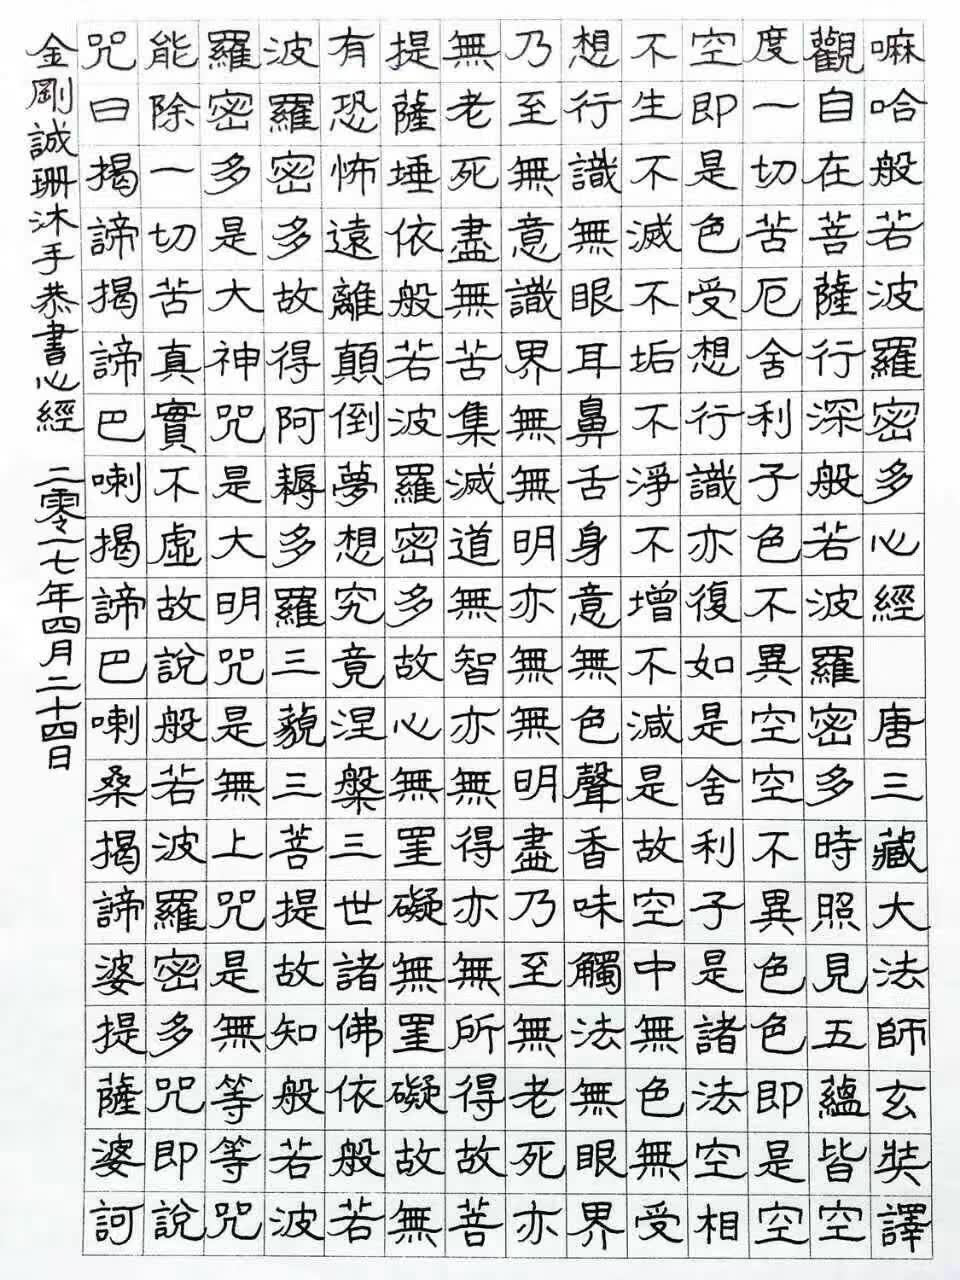 嘛哈般若波羅密多心經 唐三藏大法師玄奘譯
觀自在菩薩行深般若波羅密多時照見五蘊皆空
度一切苦厄舍利子色不異空空不異色色即是空
空即是色受想行識亦復如是舍利子是諸法空相
不生不滅不垢不淨不增不減是故空中無色無受
想行識無眼耳鼻舌身意無色聲香味觸法無眼界
乃至無意識界無無明亦無無明盡乃至無老死亦
無老死盡無苦集滅道無智亦無得亦無所得故菩
提薩埵依般若波羅密多故心無罣礙無罣礙故無
有恐怖遠離顛倒夢想究竟涅槃三世諸佛依般若
波羅密多故得阿耨多羅三藐三菩提故知般若波
羅密多是大神咒是大明咒是無上咒是無等等咒
能除一切苦真實不虛故說般若波羅密多咒即說
咒曰揭諦揭諦巴喇揭諦巴喇桑揭諦婆提薩婆訶
金剛誠珊沐手恭書心經 二零一七年四月二十四日